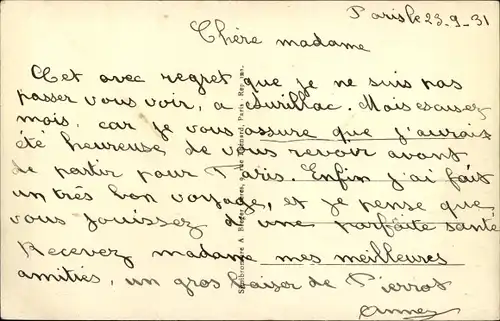 Paris le 23-9-31
Chère madame
Cet avec regret que je ne suis pas
passer vous voir, a Aurillac. Mais escusez
mois, car je vous assure que j'aurais
été heureuse de vous revoir avant
de partir pour Paris. Enfin j'ai fait
un très bon voyage, et je pense que
vous jouissez d'une parfaite santé
Recevez madame mes meilleures
amitiés, un gros baiser de Pierrot